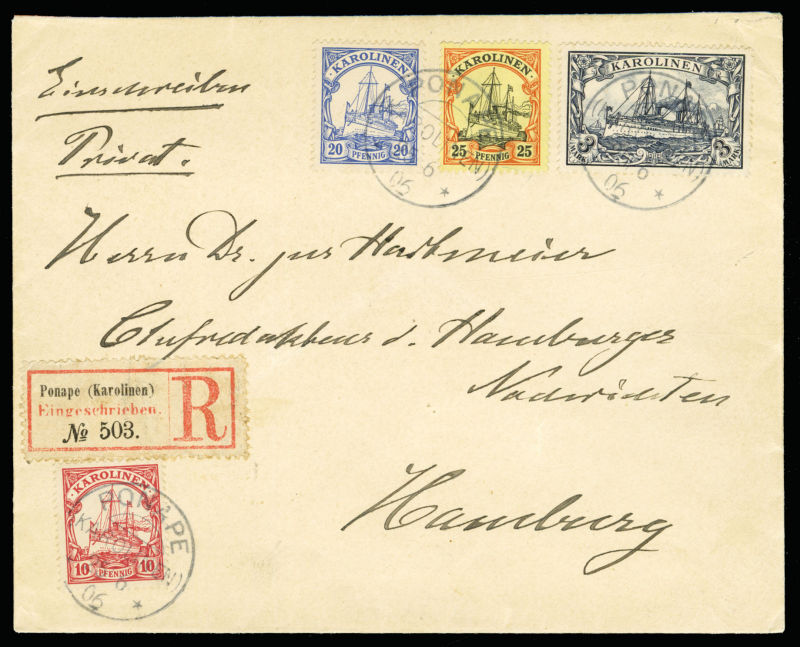 Einschreiben
Privat.
KAROLINEN
20 PFENNIG 20
KAROLINEN
25 PFENNIG 25
KAROLINEN
3 MARK 3 MARK
PONAPE
06
PONAPE
06
Herrn Dr. jur Hartmeier
Chefredakteur d. Hamburger
Nachrichten
Hamburg
Ponape (Karolinen)
Eingeschrieben.
№ 503.
R
KAROLINEN
10 PFENNIG 10
PONAPE
(KAROLINEN)
6
06